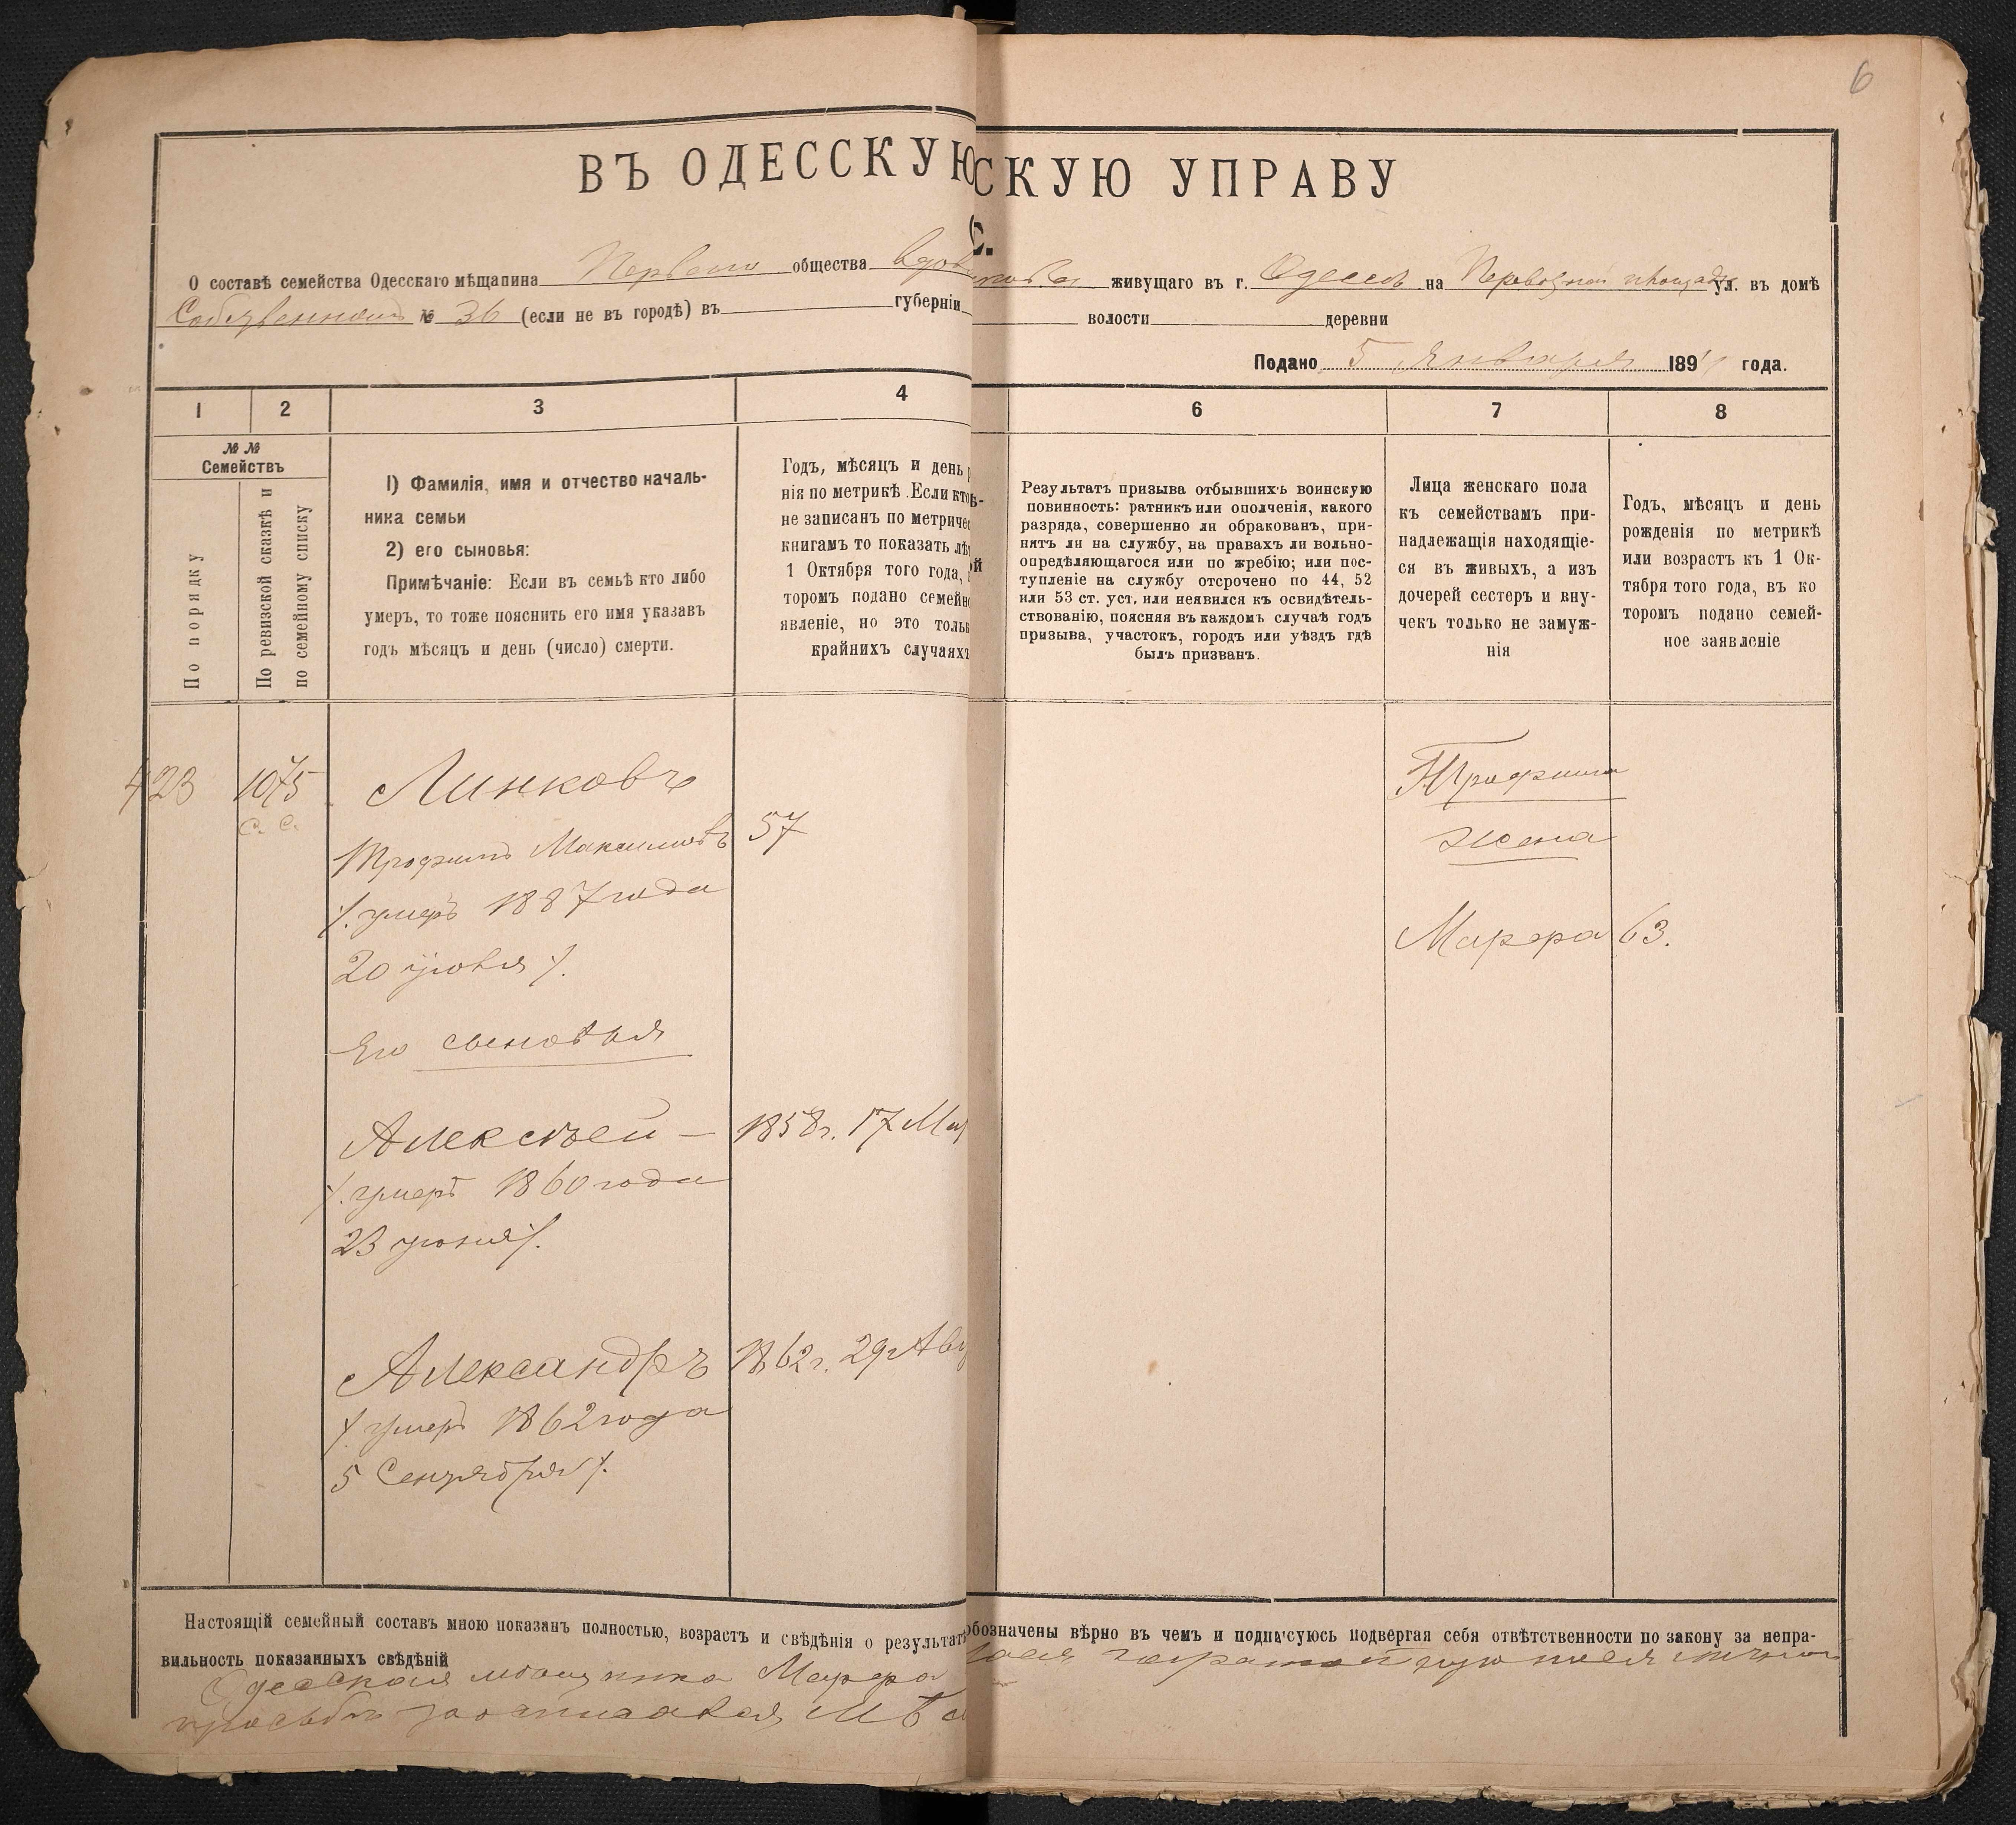 6
ВЪ ОДЕССКУЮ
СКУЮ УПРАВУ
С.
О составѣ семейства Одесскаго мѣщанина Перваго общества вдов
кова живущаго въ г. Одессѣ на Перевозной площади ул. въ домѣ
Собственномъ № 36 (если не въ городѣ) въ губерніи
волости деревни
Подано 5 Января 1891 года.
1 2 3 4
6 7 8
№ №
Семействъ
По порядку
По ревизской сказкѣ и
по семейному списку
1) Фамилія, имя и отчество началь-
ника семьи
2) его сыновья:
Примѣчаніе: Если въ семьѣ кто либо
умеръ, то тоже пояснить его имя указавъ
годъ мѣсяцъ и день (число) смерти.
Годъ, мѣсяцъ и день р
нія по метрикѣ. Если кто
не записанъ по метричес
книгамъ то показать лѣт
1 Октября того года,
торомъ подано семейно
явленіе, но это тольк
крайнихъ случаяхъ
ѣ-
ой
Результатъ призыва отбывшихъ воинскую
повинность: ратникъ или ополченія, какого
разряда, совершенно ли обракованъ, при-
нятъ ли на службу, на правахъ ли вольно-
опредѣляющагося или по жребію; или пос-
тупленіе на службу отсрочено по 44, 52
или 53 ст. уст. или неявился къ освидѣтель-
ствованію, поясняя въ каждомъ случаѣ годъ
призыва, участокъ, городъ или уѣздъ гдѣ
былъ призванъ.
Лица женскаго пола
къ семействамъ при-
надлежащія находящіе-
ся въ живыхъ, а изъ
дочерей сестеръ и вну-
чекъ только не замуж-
нія
Годъ, мѣсяцъ и день
рожденія по метрикѣ
или возрастъ къ 1 Ок-
тября того года, въ ко
торомъ подано семей-
ное заявленіе
423 1075 Линковъ
С. С.
Трофимъ Максимовъ 57
/. умеръ 1887 года
20 іюля /.
Его сыновья
Алексѣй — 1858 г. 17 Ма
/. умеръ 1860 года
23 іюня /.
Александръ 1862 г. 29 Авг
/. умеръ 1862 года
5 Сентября /.
Трофима
жена
Марфа 63.
Настоящій семейный составъ мною показанъ полностью, возрастъ и свѣдѣнія о результатѣ
обозначены вѣрно въ чемъ и подписуюсь подвергая себя отвѣтственности по закону за непра-
вильность показанныхъ свѣдѣній
Одесская мѣщанка Марфа